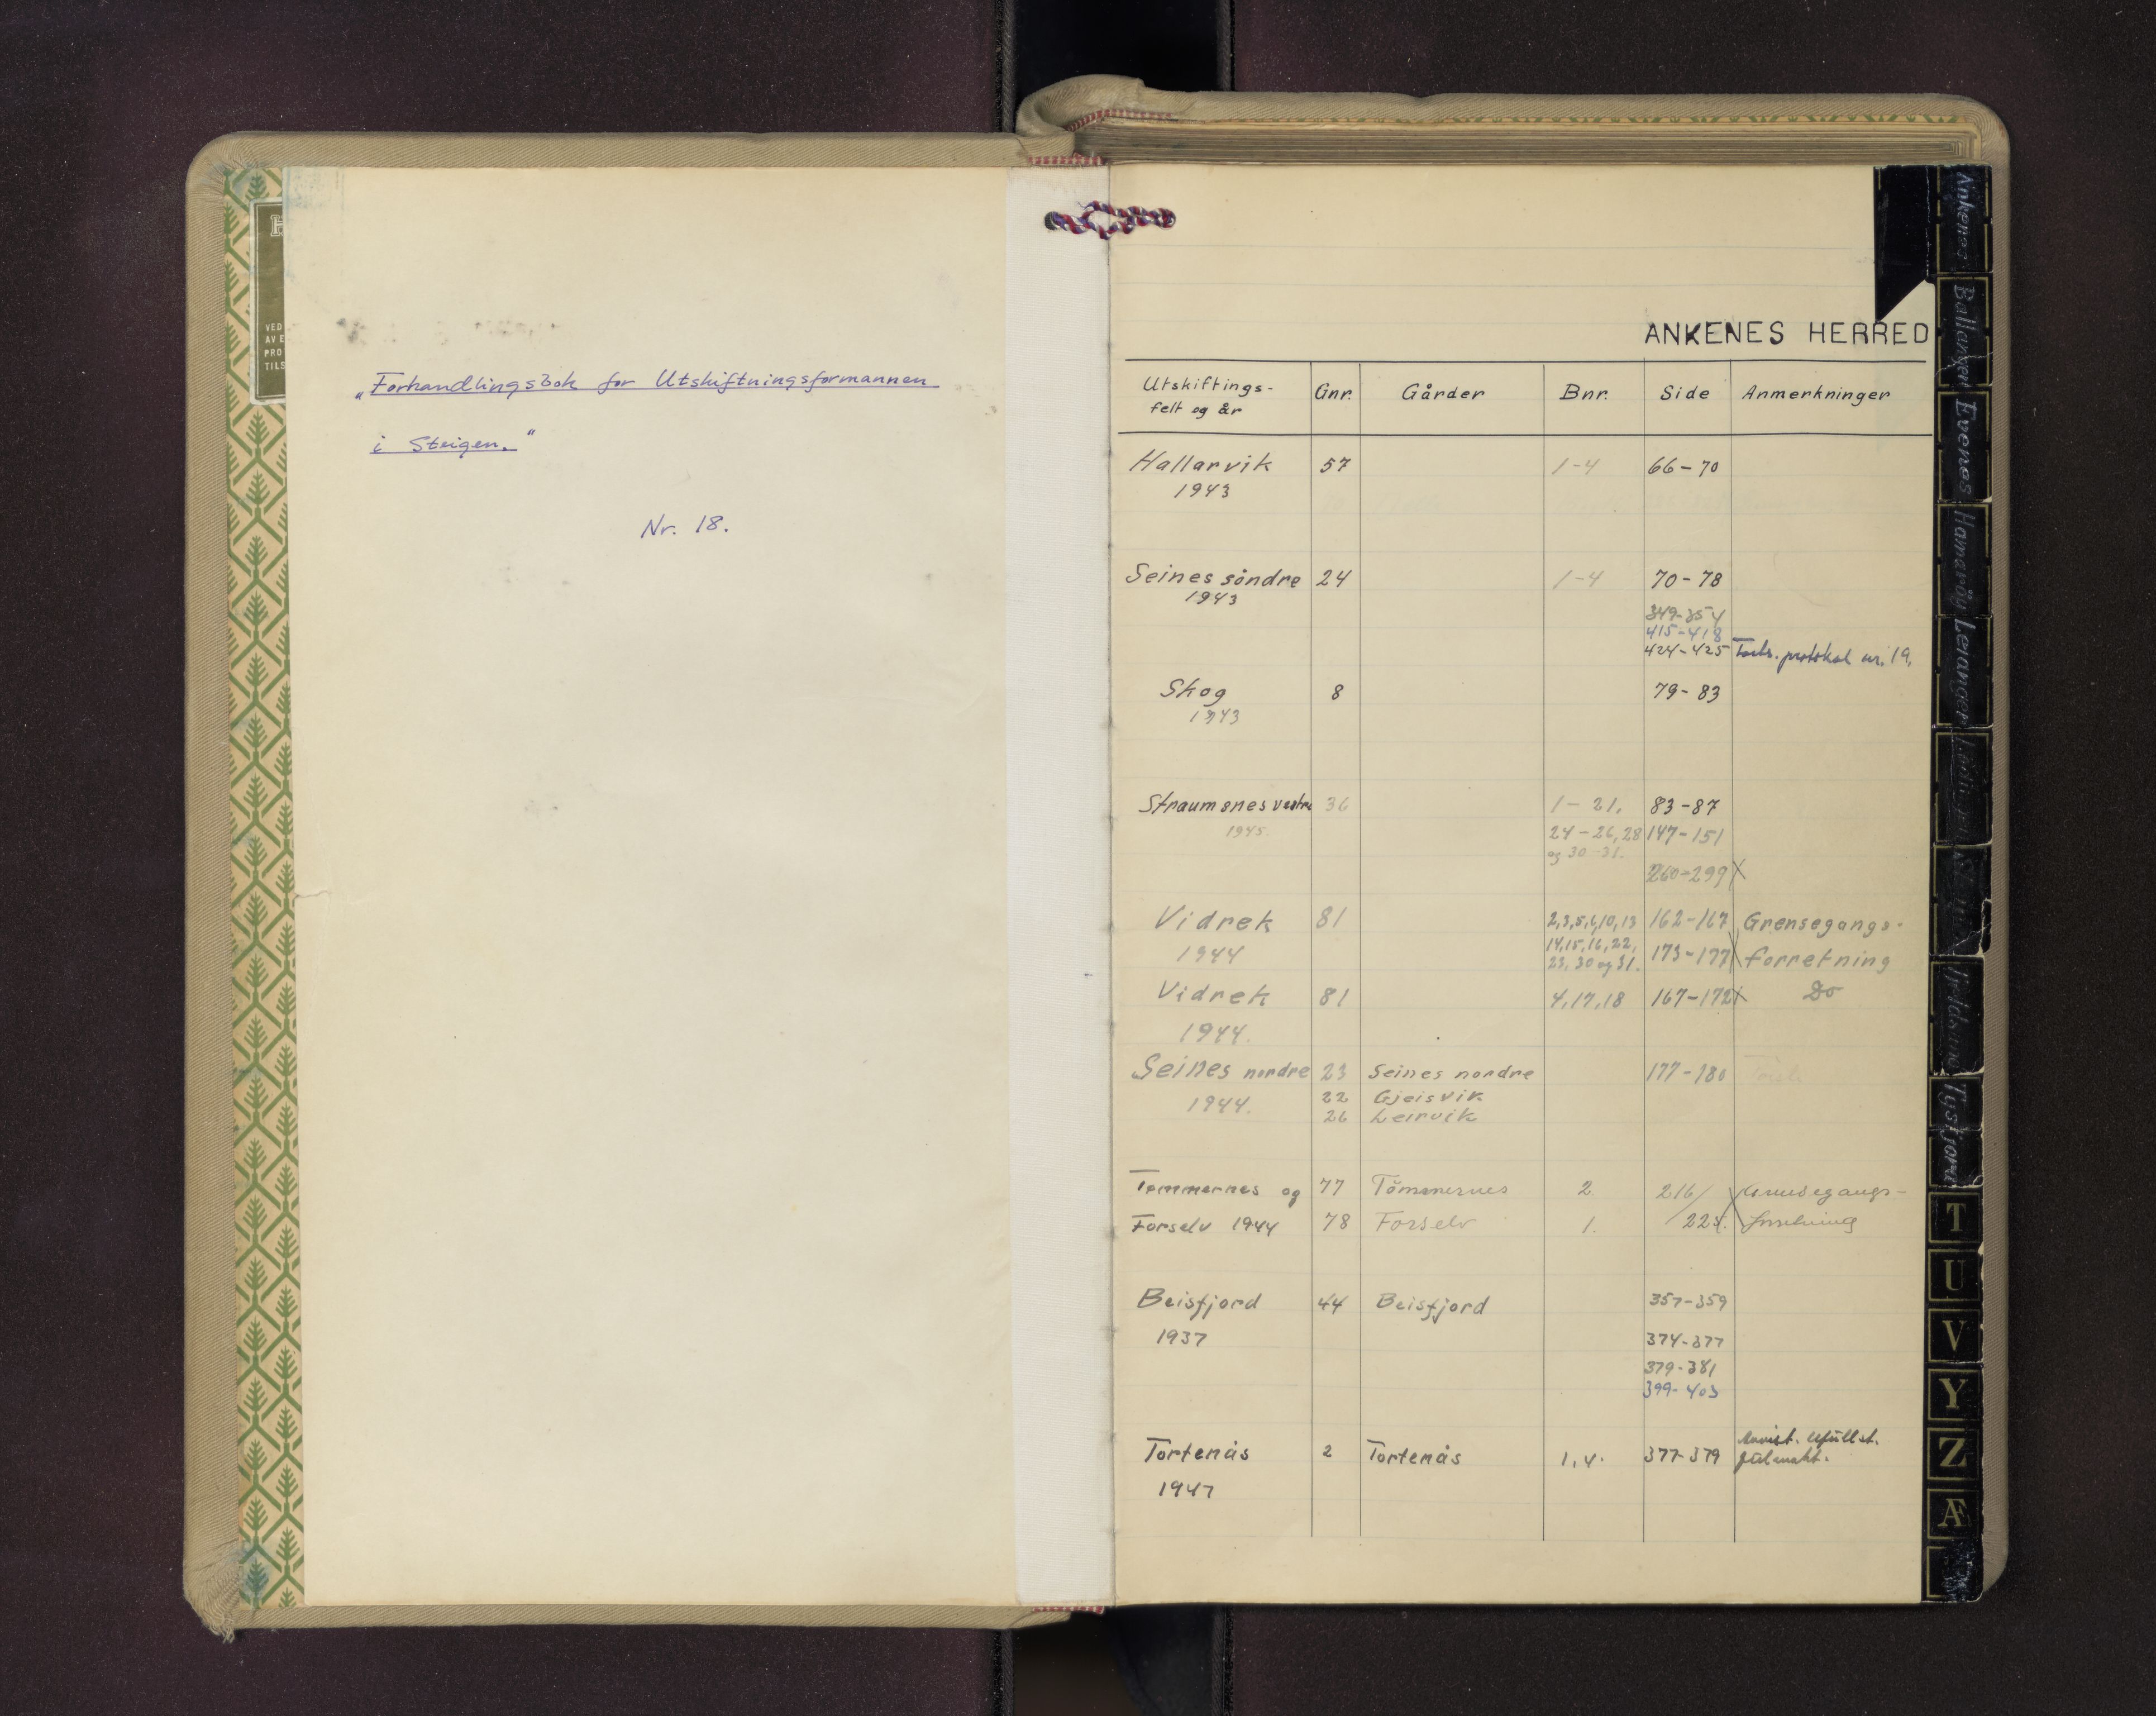 „Forhandlingsbok for Utskiftningsformannen
i Steigen.“
Nr. 18.
VED
AV E
PRO
TILS
ANKENES HERRED
Utskiftings- Gnr. Gårder Bnr. Side Anmerkninger
felt og år
Hallarvik 57 1-4 66-70
1943
Seines söndre 24 1-4 70-78
1943
349-354
415-418
424-425 protokol nr. 19.
Skog 8 79-83
1943
Straumsnes vestre 36 1-21. 83-87
1945 24-26, 28 147-151
og 30-31.
260-299 X
Vidrek 81 2,3,5,6,10,13 162-167 Grensegangs-
14,15,16,22,
1944 23, 30 og 31. 173-177 X forretning
Vidrek 81 4,17,18 167-172 X Do
1944.
Seines nordre 23 Seines nordre 177-180
1944. 22 Gjeisvik
26 Leirvik
Tømmernes og 77 Tömmernes 2 216/
Forselv 1944 78 Forselv 1.
Beisfjord 44 Beisfjord 357-359
1937 374-377
379-381
399-403
Tortenås 2 Tortenås 1,4. 377-379
1947
Ankenes
Ballangen
Evenes
Hamarøy
Leiranger
Tysfjord
T
U
V
Y
Z
Æ